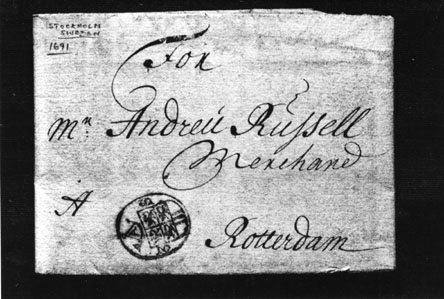 STOCKHOLM
SWEDEN
1691
For
Mr. Andreu Russell
Merchand
A
Rotterdam